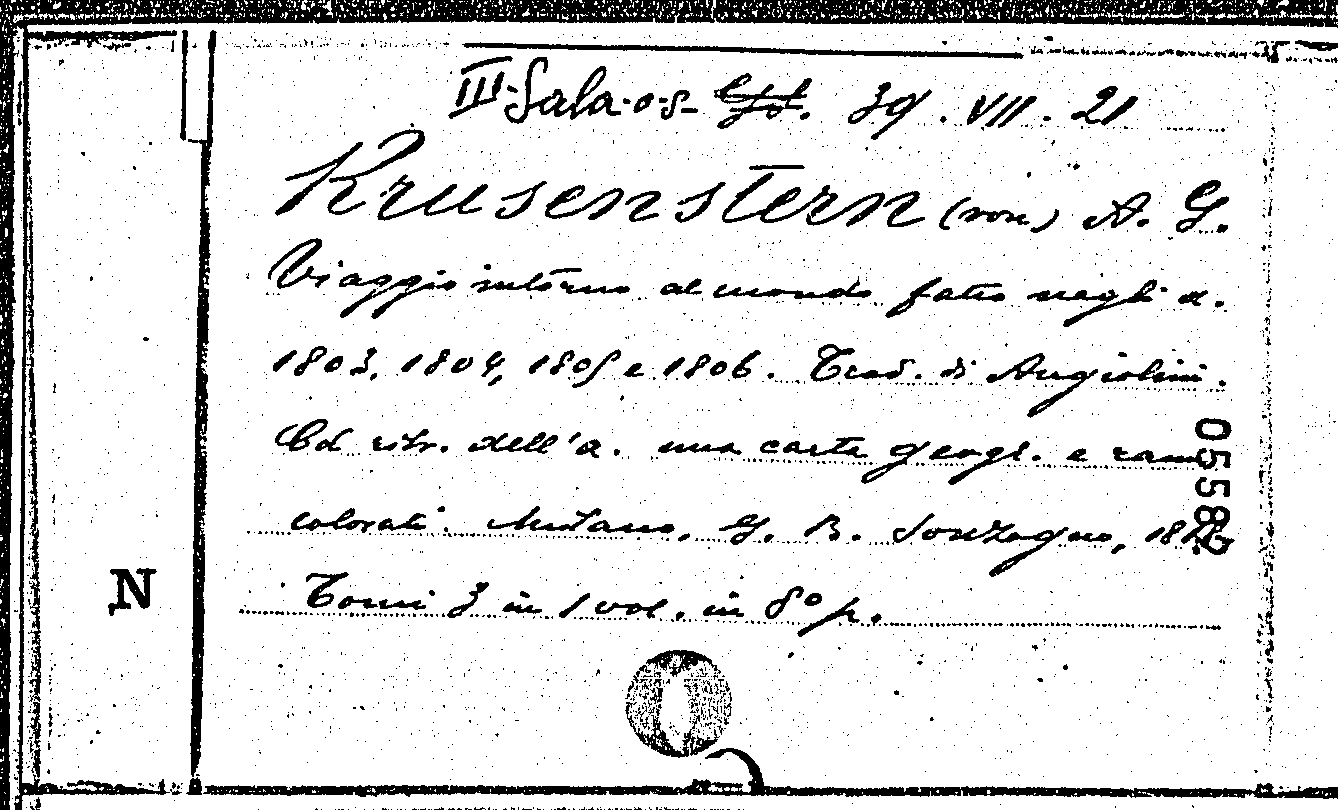 III Sala-o-s- 39. VII. 21
Krusenstern (von) A. G.
Viaggio intorno al mondo fatto negli a.
1803, 1804, 1805 e 1806. Trad. di Angiolini.
Col ritr. dell'a. una carta geogr. e rami
colorati. Milano, G. B. Sonzogno,
Tomi 3 in 1 vol. in 8° p.
05582
N